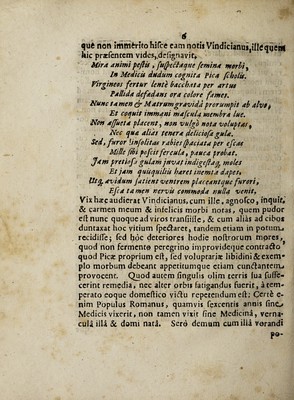 6
què non immerito hisce eam notis Vindicianus, ille quem
hic præsentem vides, designavit.
Mira animi pestis, suspectaque femina morbi,
In Medicis dudum cognita Pica scholis.
Virgineos fertur lentè bacchata per artus
Pallida defædans ora colore fames.
Nunc tamen & Matrum gravidâ prorumpit ab alvo,
Et coquit immani mascula membra lue.
Non assueta placent, non vulgò nota voluptas,
Nec qua alias tenera deliciosa gula.
Sed, furor! insolitas rabies spaciata per escas
Mille sibi poscit fercula, pauca probat.
Jam pretioso gulam juvat indigestaq; moles
Et jam quisquiliis haret inempta dapes.
Utq; avidum satient ventrem placeantque furori,
Esca tamen nervis commoda nulla venit.
Vix hæc audierat Vindicianus, cum ille, agnosco, inquit,
& carmen meum & infelicis morbi notas, quem pudor
est nunc quoque ad viros transiisse, & cum aliàs ad cibos
duntaxat hoc vitium spectaret, tandem etiam in potum
recidisse; sed hôc deteriores hodie nostrorum mores,
quod non fermento peregrino improvideque contracto
quod Picæ proprium est, sed voluptariæ libidini & exem-
plo morbum debeant appetitumque etiam cunctantem
provocent. Quod autem singulis olim terris sua suffe-
cerint remedia, nec alter orbis fatigandus fuerit, à tem-
perato eoque domestico victu repetendum est: Certè e-
nim Populus Romanus, quamvis sexcentis annis sine
Medicis vixerit, non tamen vixit sine Medicinâ, verna-
culâ illâ & domi natâ. Serò demum cum illâ vorandi
po-